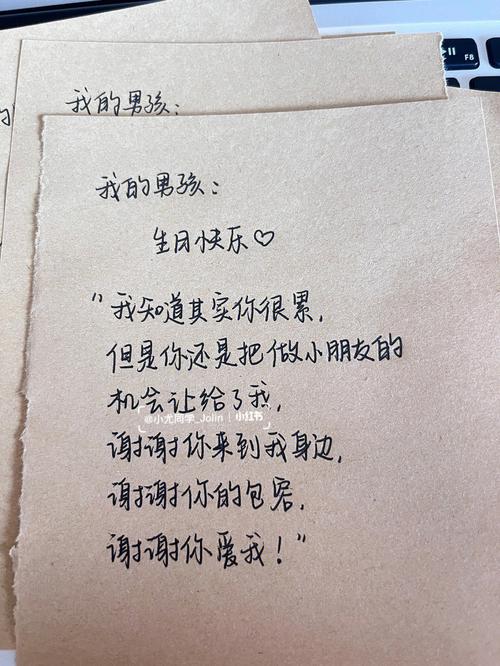 F8
我的男孩：
我的男孩：
生日快乐♡
“我知道其实你很累，
但是你还是把做小朋友的
机会让给了我，
@小尤同学_Jolin 小红书
谢谢你来到我身边，
谢谢你的包容，
谢谢你爱我！”